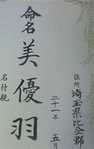 命名
美優羽
名付親
住所
埼玉県比企郡
二十一年
五月